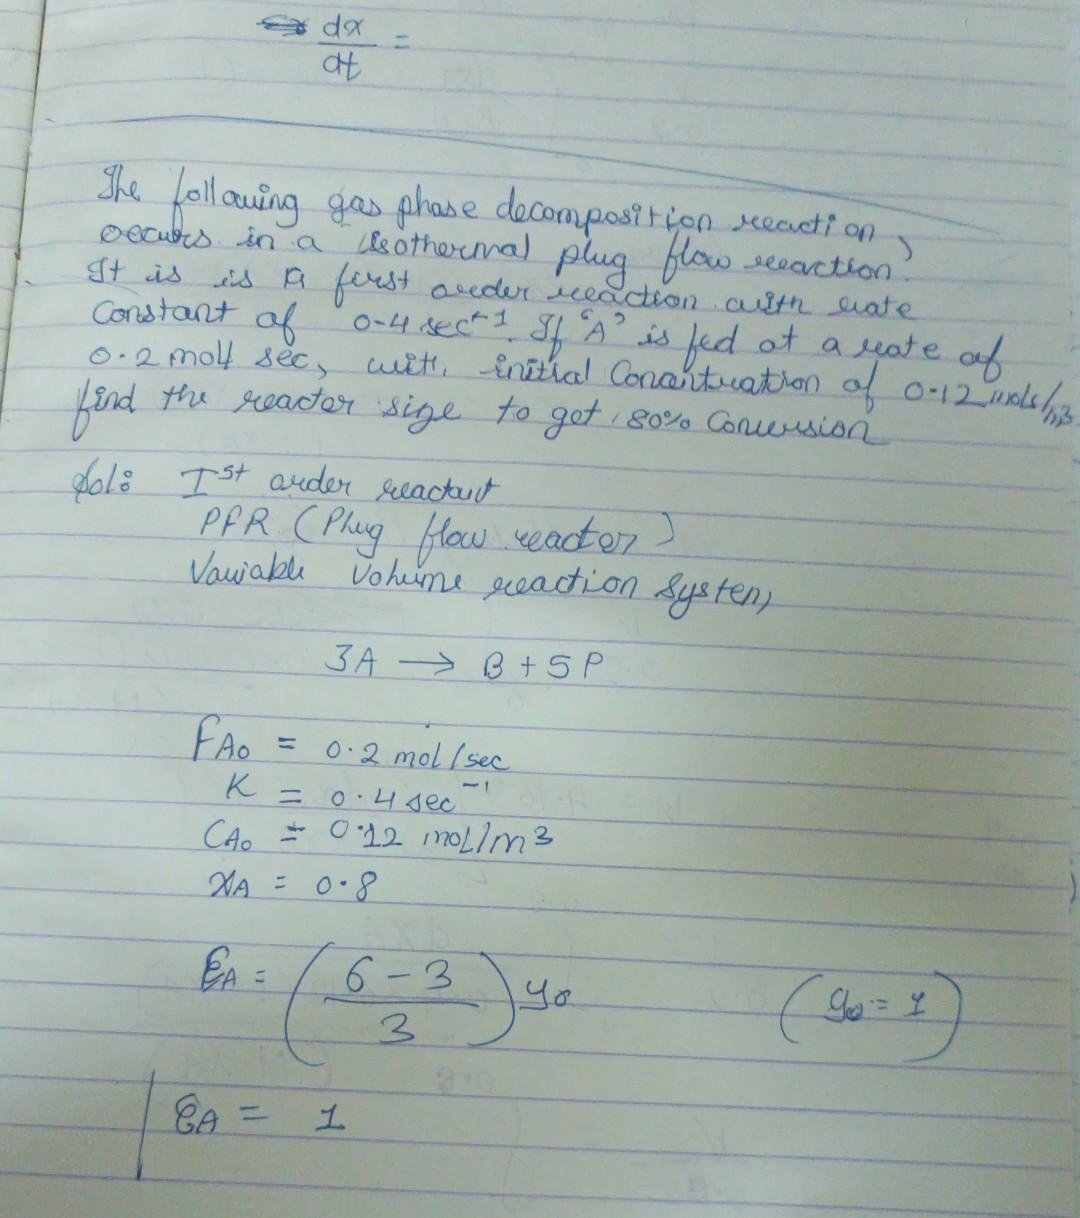 dx/dt =
The following gas phase decomposition reaction,
occurs in a isothermal plug flow reaction.
It is is a first order reaction with rate
Constant of 0.4 sec⁻¹. If "A" is fed at a rate of
0.2 mol/ sec, with initial Concentration of 0.12 mols/m3.
find the reactor size to get 80% Conversion
Sol: Ist order reactant
PFR (Plug flow reactor)
Variable Volume reaction System,
3A → B + 5P
FA₀ = 0.2 mol/sec
K = 0.4 sec⁻¹
CA₀ = 0.12 mol/m3
XA = 0.8
ƐA = ((6-3)/3) y₀ (y₀ = 1)
ƐA = 1